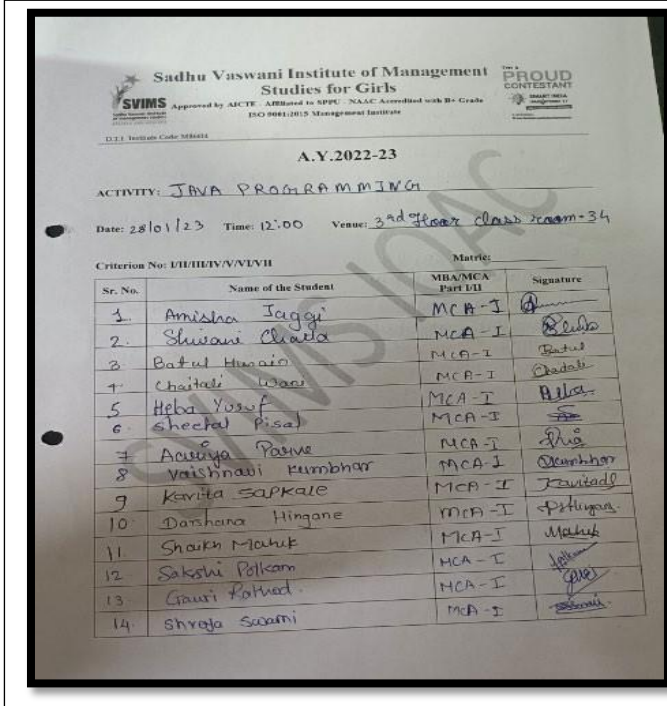 Sadhu Vaswani Institute of Management
Studies for Girls
SVIMS
Approved by AICTE - Affiliated to SPPU - NAAC Accredited with B+ Grade
ISO 9001:2015 Management Institute
PROUD
CONTESTANT
A.Y.2022-23
ACTIVITY: JAVA PROGRAMMING
Date: 28/01/23 Time: 12:00 Venue: 3rd floor class room-34
Criterion No: I/II/III/IV/V/VI/VII Matric:
Sr. No. Name of the Student MBA/MCA Part I/II Signature
1. Amisha Jaggi MCA-I
2. Shivani Chada MCA-I
3 Batul Husain MCA-I Batul
4. Chaitali Wani MCA-I
5 Heba Yusuf MCA-I Heba
6. Sheetal Pisal MCA-I
7 MCA-I
8 Vaishnavi Kumbhar MCA-I Vkumbhar
9 Kavita Sapkale MCA-I
10. Darshana Hingane MCA-I
11. Shaikh Mahek MCA-I Mahek
12 Sakshi Polkam MCA-I
13. Gauri Rathod. MCA-I
14. Shreja Swami MCA-I
SVIMS IQAC